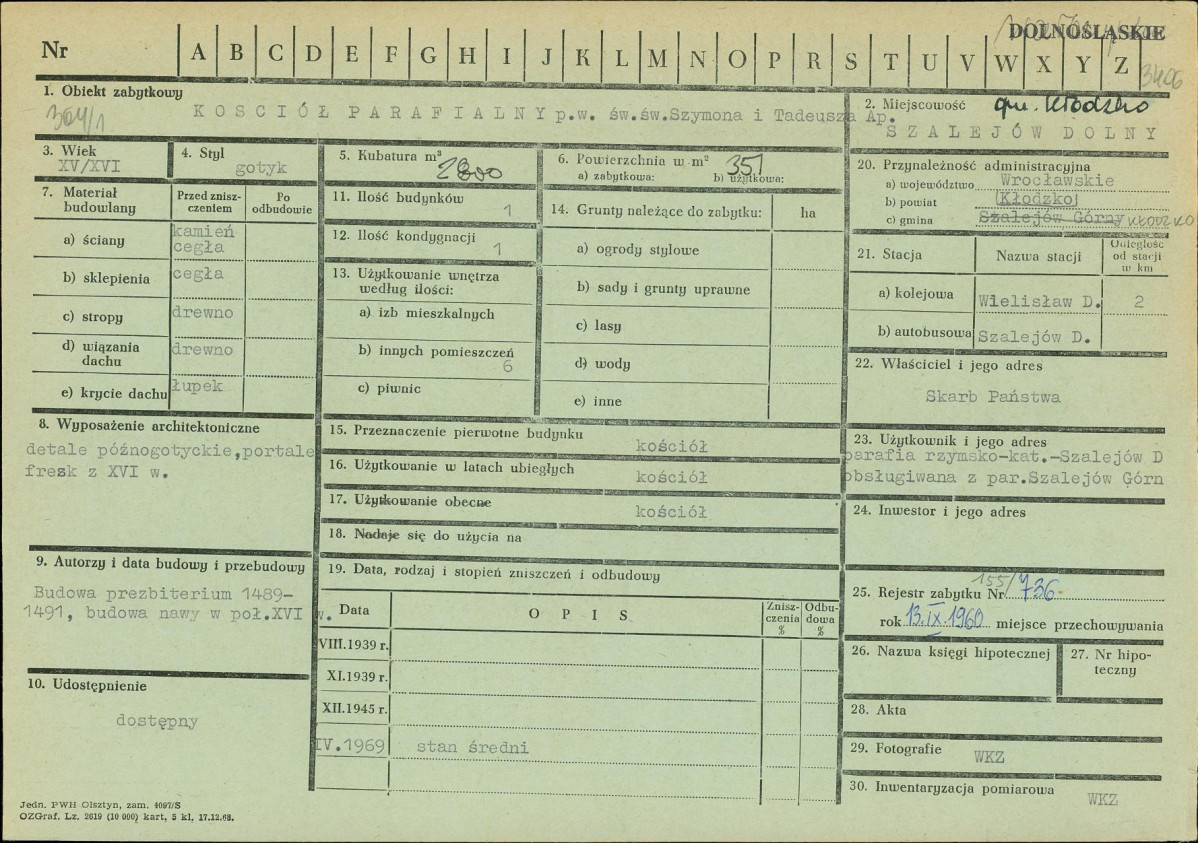 DOLNOŚLĄSKIE
Nr A B C D E F G H I J K L M N O P R S T U V W X Y Z
3406
1. Obiekt zabytkowy
364/1
KOSCIÓŁ PARAFIALNY p.w. św.św.Szymona i Tadeusza Ap.
2. Miejscowość gm. Kłodzko
SZALEJÓW DOLNY
3. Wiek
XV/XVI
4. Styl
gotyk
5. Kubatura m³
2800
6. Powierzchnia w m² 351
a) zabytkowa: b) użytkowa:
7. Materiał budowlany
Przed znisz-
czeniem
Po
odbudowie
a) ściany kamień
cegła
b) sklepienia cegła
c) stropy drewno
d) wiązania
dachu
drewno
e) krycie dachu łupek
8. Wyposażenie architektoniczne
detale późnogotyckie,portale
fresk z XVI w.
9. Autorzy i data budowy i przebudowy
Budowa prezbiterium 1489-
1491, budowa nawy w poł.XVI w.
10. Udostępnienie
dostępny
11. Ilość budynków
1
12. Ilość kondygnacji
1
13. Użytkowanie wnętrza
według ilości:
a) izb mieszkalnych
b) innych pomieszczeń
6
c) piwnic
14. Grunty należące do zabytku: ha
a) ogrody stylowe
b) sady i grunty uprawne
c) lasy
d) wody
e) inne
15. Przeznaczenie pierwotne budynku
kościół
16. Użytkowanie w latach ubiegłych
kościół
17. Użytkowanie obecne
kościół
18. Nadaje się do użycia na
19. Data, rodzaj i stopień zniszczeń i odbudowy
Data OPIS Znisz-
czenia
%
Odbu-
dowa
%
VIII.1939 r.
XI.1939 r.
XII.1945 r.
IV.1969 stan średni
20. Przynależność administracyjna
a) województwo Wrocławskie
b) powiat Kłodzko
c) gmina Szalejów Górny KŁODZKO
21. Stacja Nazwa stacji Odległość
od stacji
w km
a) kolejowa Wielisław D. 2
b) autobusowa Szalejów D.
22. Właściciel i jego adres
Skarb Państwa
23. Użytkownik i jego adres
parafia rzymsko-kat.-Szalejów D
obsługiwana z par.Szalejów Górn
24. Inwestor i jego adres
25. Rejestr zabytku Nr 155/736
rok 13.IX.1960 miejsce przechowywania
26. Nazwa księgi hipotecznej
27. Nr hipo-
teczny
28. Akta
29. Fotografie WKZ
30. Inwentaryzacja pomiarowa WKZ
Jedn. PWH Olsztyn, zam. 4097/S
OZGraf. Lz. 2619 (10 000) kart, 5 kl, 17.12.68.